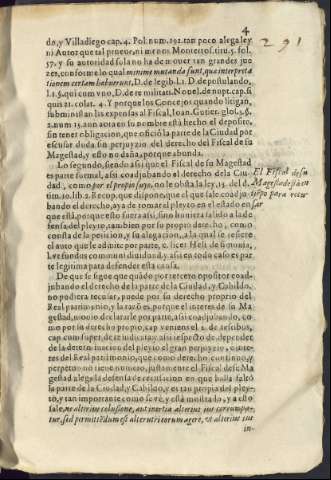 4
291
do, y Villadiego cap. 4. Pol. num. 192. tan poco alega ley
ni Autor que tal prueue, ni menos Monterroso tra. 5. fol.
57. y su autoridad sola no ha de mouer tan grandes jue
zes, conforme lo qual minime mutanda sunt, quæ interpreta
tionem certam habuerunt, D. de legib. l. 1. D. de postulando,
l. 1. §. qui cum vno, D. de re militati. Nouel. de nupt. cap. si
quis 21. colat. 4. Y porque los Concejos quando litigan,
subministran las expensas al Fiscal, Ioan. Gutier. glos. 5. §.
2. num 15. aun aora en su nombre está hecho el deposito,
sin tener obligacion, que ofició la parte de la Ciudad por
escusar duda sin perjuyzio del derecho del Fiscal de su
Magestad, y esto no daña, porque abunda.
Lo segundo, siendo assi que el Fiscal de su Magestad
es parte formal, assi coadjubando el derecho de la Ciu
dad, como por el propio suyo, no le obsta la ley 15. del d.
tit. 10. lib. 2. Recop. que dispone, que el que sale coadju
bando el derecho, aya de tomar el pleyto en el estado en
que está, porque esto fuera assi, sino huuiera salido a la de
fensa del pleyto, tambien por su propio derecho, como
consta de la peticion, y su alegacion, a la qual se refiere
el auto que le admite por parte,
l. ve fundus communi diuidundo, y assi en todo caso es par
te legitima para defender esta causa.
El Fiscal de su
Magestad es
tiẽpo para recu
sar
De que se sigue que quãdo por tercero opositor coad-
jubando el derecho de la parte de la Ciudad, y Cabildo,
no pudiera recusar, puede por su derecho proprio del
Real patrimonio, y la razõ es, porque el interes de su Ma
gestad, no o ie declararle por parte, assi coadjubando, co
mo por su derecho propio, cap. veniens el 2. de testibus,
cap. cum super, de re iudicata, y assi respecto de depender
de la determinacion del pleyto el gran perjuyzio, contra
tes del Real patrimonio, que como derecho continuo, y
perpetuo no tiene numero, justamente el Fiscal de su Ma
gestad alega la defensa de recusacion en que halla fundó
la parte de la Ciudad, y Cabildo, y es tan propia del pley-
to, y tan importante como se vè, y está mostrado, y a esto
sale, ne alterius colusione, aut inertia alterius ius corrumpa-
tur, sed permittẽdum est alteri etiam agere, vt alterius ius
in-